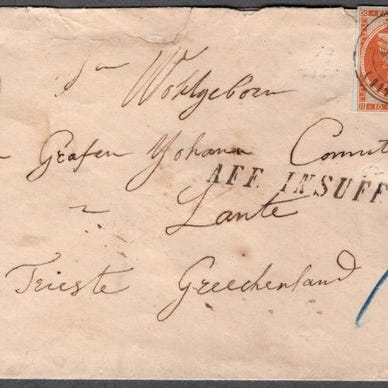 Wohlgeborn
Grafen Yohann Comut
AFF. INSUFF
Zante
Trieste Greechenland